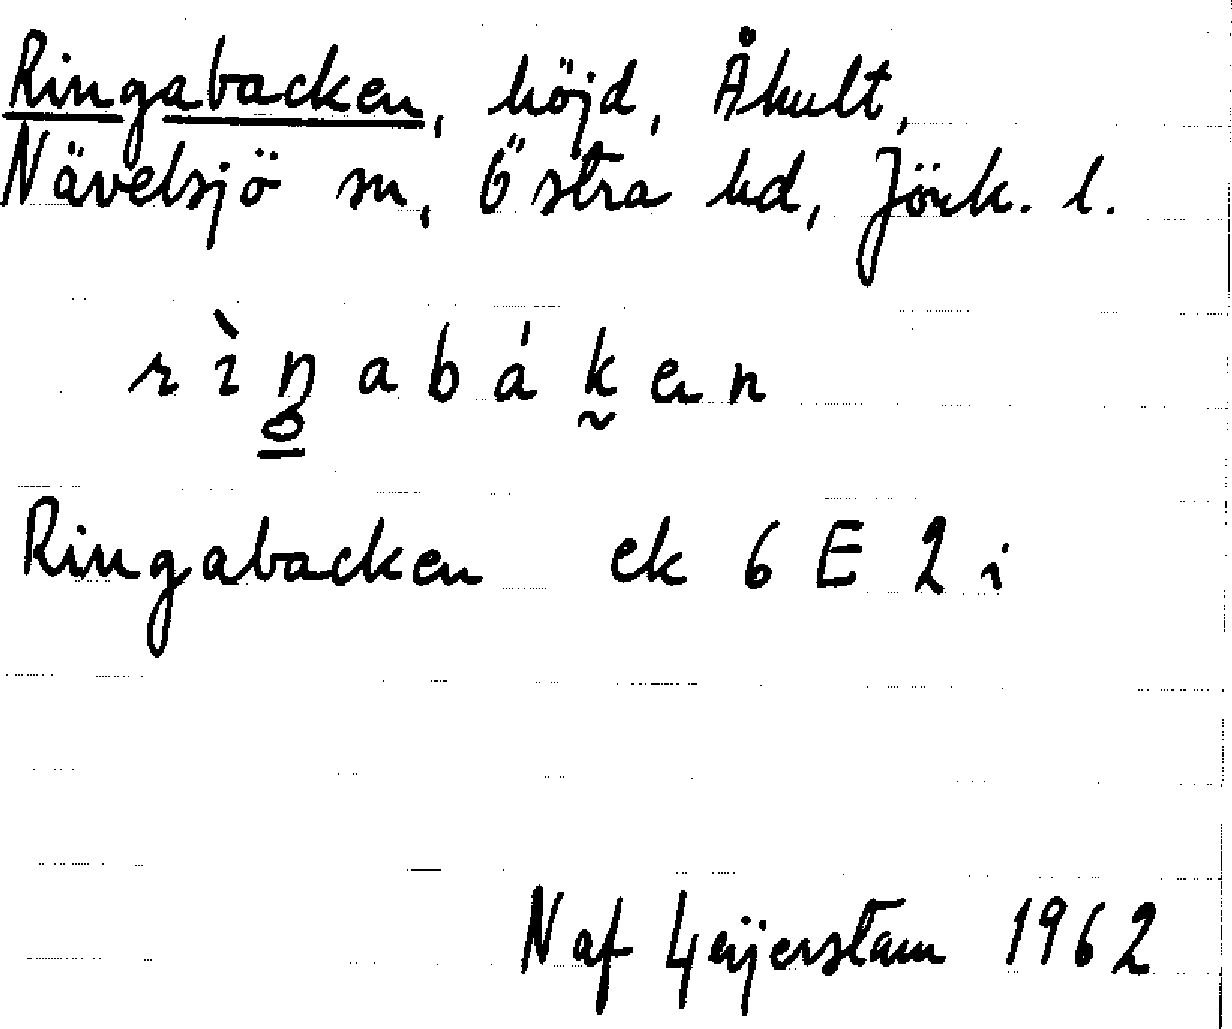 Ringabacken, höjd, Åhult,
Nävelsjö sn, Östra hd, Jönk. l.
rìŋabáken
Ringabacken ek 6 E 2 i
N af Geijerstam 1962